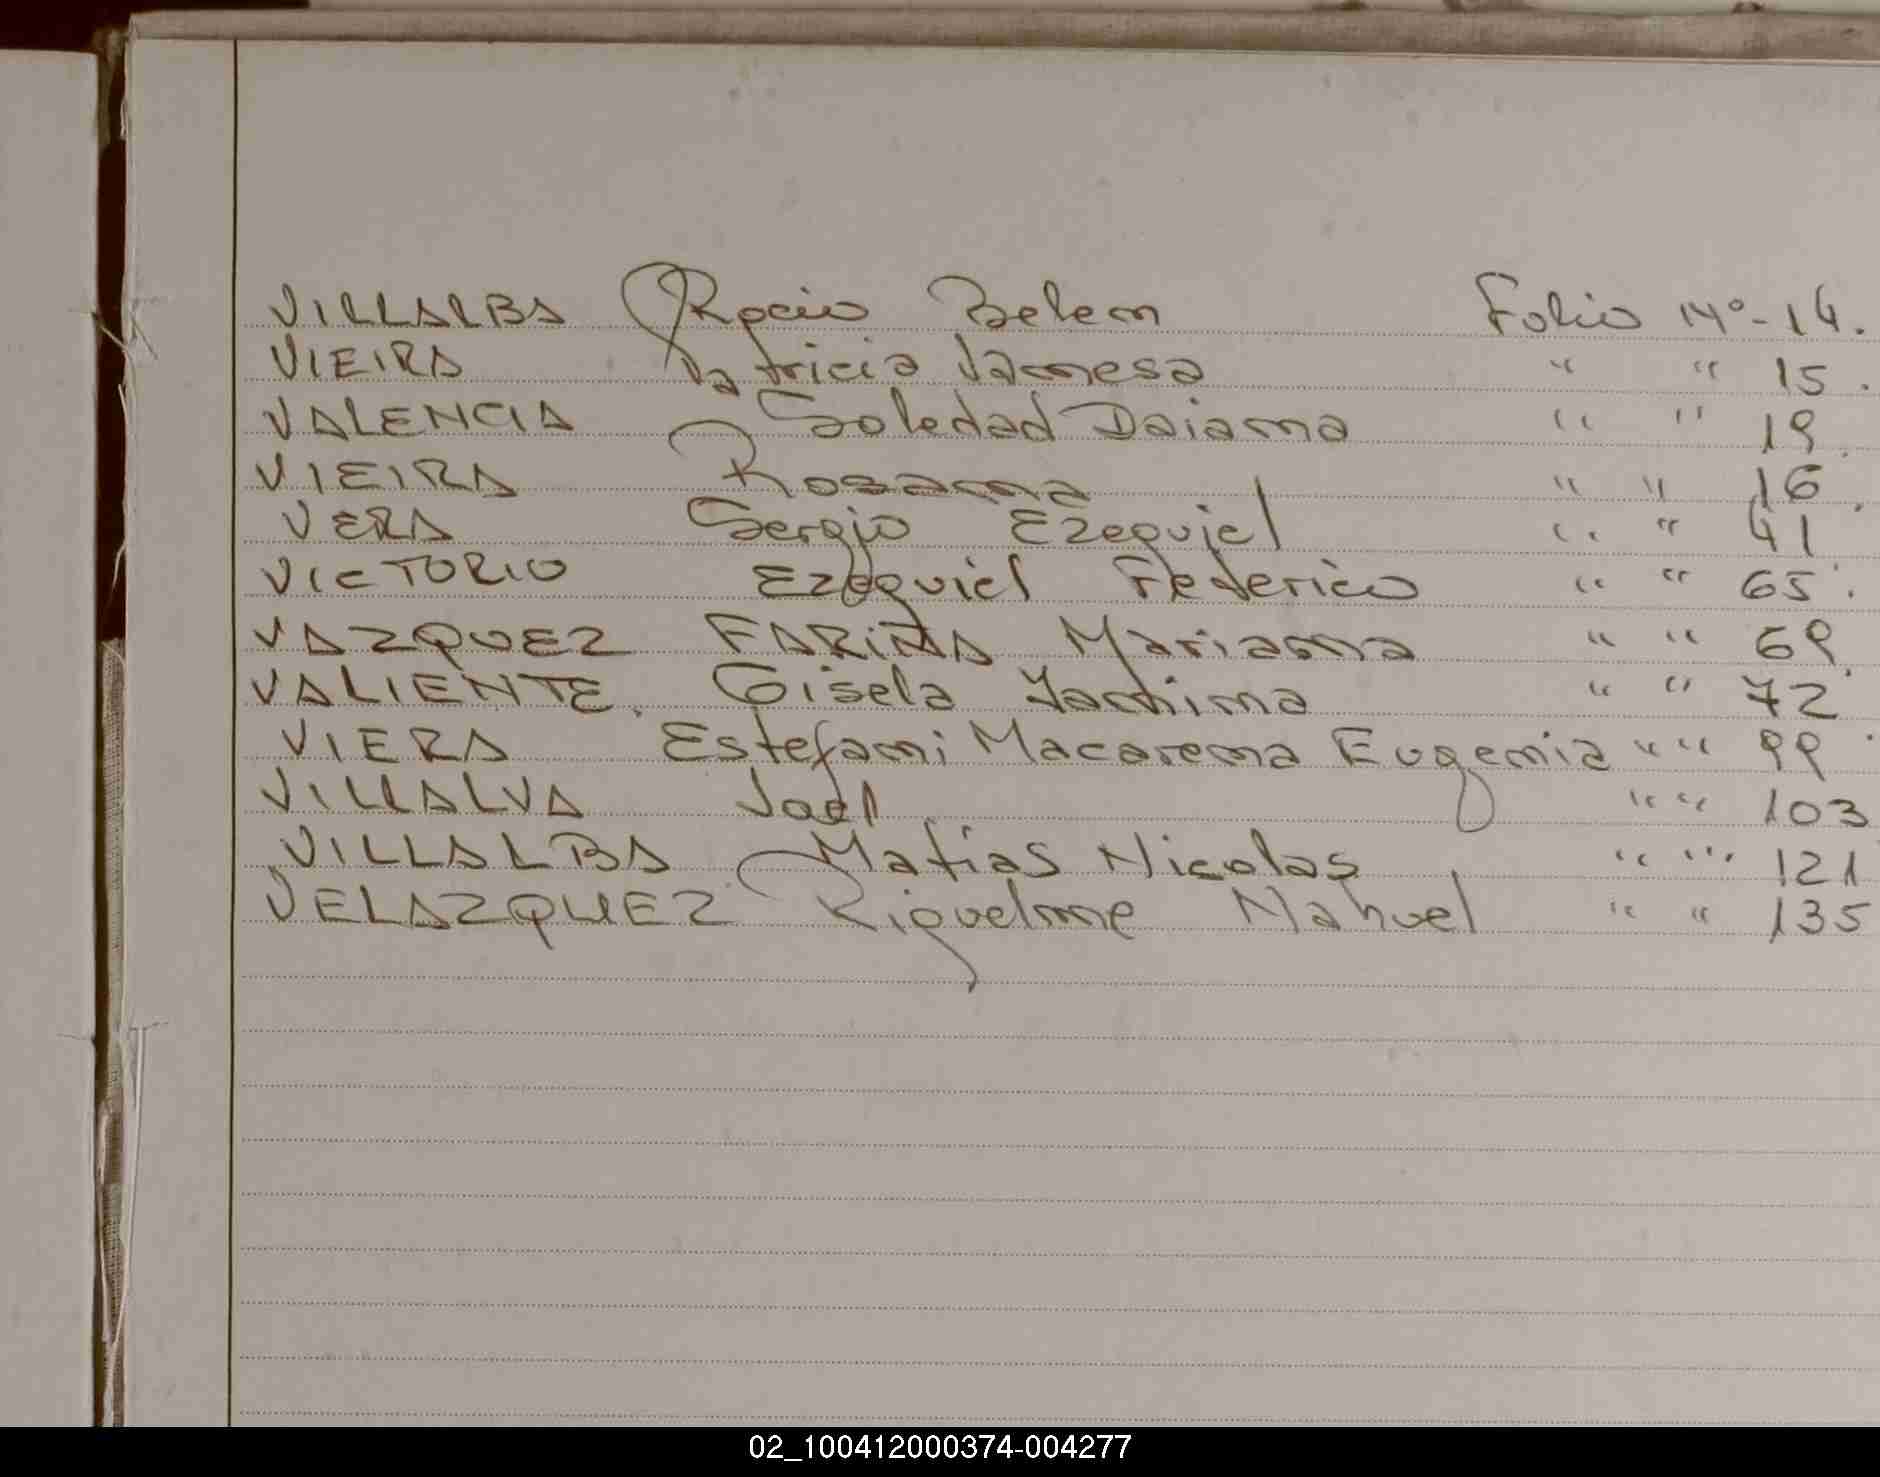 VILLALBA Rocio Belen Folio Nº-14.
VIEIRA Patricia Vanesa " " 15.
VALENCIA Soledad Daiana " " 19.
VIEIRA Rosana " " 16.
VERA Sergio Ezequiel " " 41
VICTORIO Ezequiel Federico " " 65.
VAZQUEZ FARIÑA Mariana " " 69.
VALIENTE. Gisela " " 72
VIERA Estefani Macarena Eugenia " " 99.
VILLALVA " " 103
VILLALBA Matias Nicolas " " 121
VELAZQUEZ Riquelme Nahuel " " 135
02_100412000374-004277